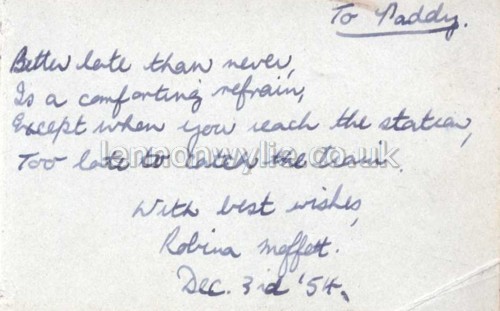 To Paddy.
Better late than never,
Is a comforting refrain,
Except when you reach the station,
Too late to catch the train.
lennonwylie.co.uk
With best wishes,
Robina Moffett.
Dec. 3rd '54.